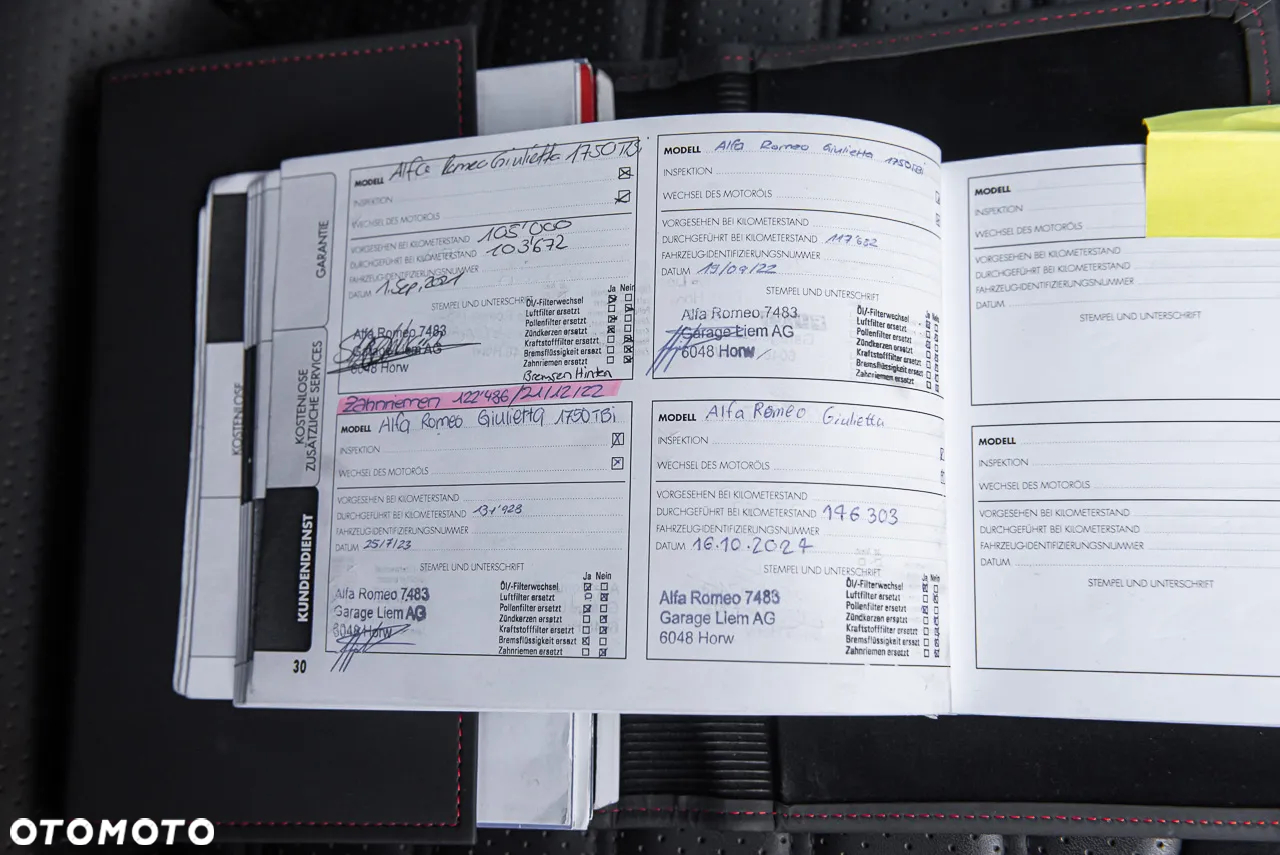 GARANTIE
KOSTENLOSE
ZUSÄTZLICHE SERVICES
KOSTENLOSE
KUNDENDIENST
30
MODELL Alfa Romeo Giulietta 1750TBi
INSPEKTION
WECHSEL DES MOTORÖLS
VORGESEHEN BEI KILOMETERSTAND 105'000
DURCHGEFÜHRT BEI KILOMETERSTAND 103'672
FAHRZEUGIDENTIFIZIERUNGSNUMMER
DATUM 1.Sep.2021
STEMPEL UND UNTERSCHRIFT
Ja Nein
Öl/-Filterwechsel
Luftfilter ersetzt
Pollenfilter ersetzt
Zündkerzen ersetzt
Kraftstofffilter ersetzt
Bremsflüssigkeit ersetzt
Zahnriemen ersetzt
Bremsen Hinten
Alfa Romeo 7483
Garage Liem AG
6048 Horw
Zahnriemen 122'486/21/12/22
MODELL Alfa Romeo Giulietta 1750TBi
INSPEKTION
WECHSEL DES MOTORÖLS
VORGESEHEN BEI KILOMETERSTAND
DURCHGEFÜHRT BEI KILOMETERSTAND
FAHRZEUGIDENTIFIZIERUNGSNUMMER
DATUM 25/7/23
STEMPEL UND UNTERSCHRIFT
Ja Nein
Öl/-Filterwechsel
Luftfilter ersetzt
Pollenfilter ersetzt
Zündkerzen ersetzt
Kraftstofffilter ersetzt
Bremsflüssigkeit ersetzt
Zahnriemen ersetzt
Alfa Romeo 7483
Garage Liem AG
6048 Horw
MODELL Alfa Romeo Giulietta 1750TBi
INSPEKTION
WECHSEL DES MOTORÖLS
VORGESEHEN BEI KILOMETERSTAND
DURCHGEFÜHRT BEI KILOMETERSTAND
FAHRZEUGIDENTIFIZIERUNGSNUMMER
DATUM 19/09/22
STEMPEL UND UNTERSCHRIFT
Ja Nein
Öl/-Filterwechsel
Luftfilter ersetzt
Pollenfilter ersetzt
Zündkerzen ersetzt
Kraftstofffilter ersetzt
Bremsflüssigkeit ersetzt
Zahnriemen ersetzt
Alfa Romeo 7483
Garage Liem AG
6048 Horw
MODELL Alfa Romeo Giulietta
INSPEKTION
WECHSEL DES MOTORÖLS
VORGESEHEN BEI KILOMETERSTAND
DURCHGEFÜHRT BEI KILOMETERSTAND 146 303
FAHRZEUGIDENTIFIZIERUNGSNUMMER
DATUM 16.10.2024
STEMPEL UND UNTERSCHRIFT
Ja Nein
Öl/-Filterwechsel
Luftfilter ersetzt
Pollenfilter ersetzt
Zündkerzen ersetzt
Kraftstofffilter ersetzt
Bremsflüssigkeit ersetzt
Zahnriemen ersetzt
Alfa Romeo 7483
Garage Liem AG
6048 Horw
MODELL
INSPEKTION
WECHSEL DES MOTORÖLS
VORGESEHEN BEI KILOMETERSTAND
DURCHGEFÜHRT BEI KILOMETERSTAND
FAHRZEUGIDENTIFIZIERUNGSNUMMER
DATUM
STEMPEL UND UNTERSCHRIFT
MODELL
INSPEKTION
WECHSEL DES MOTORÖLS
VORGESEHEN BEI KILOMETERSTAND
DURCHGEFÜHRT BEI KILOMETERSTAND
FAHRZEUGIDENTIFIZIERUNGSNUMMER
DATUM
STEMPEL UND UNTERSCHRIFT
OTOMOTO